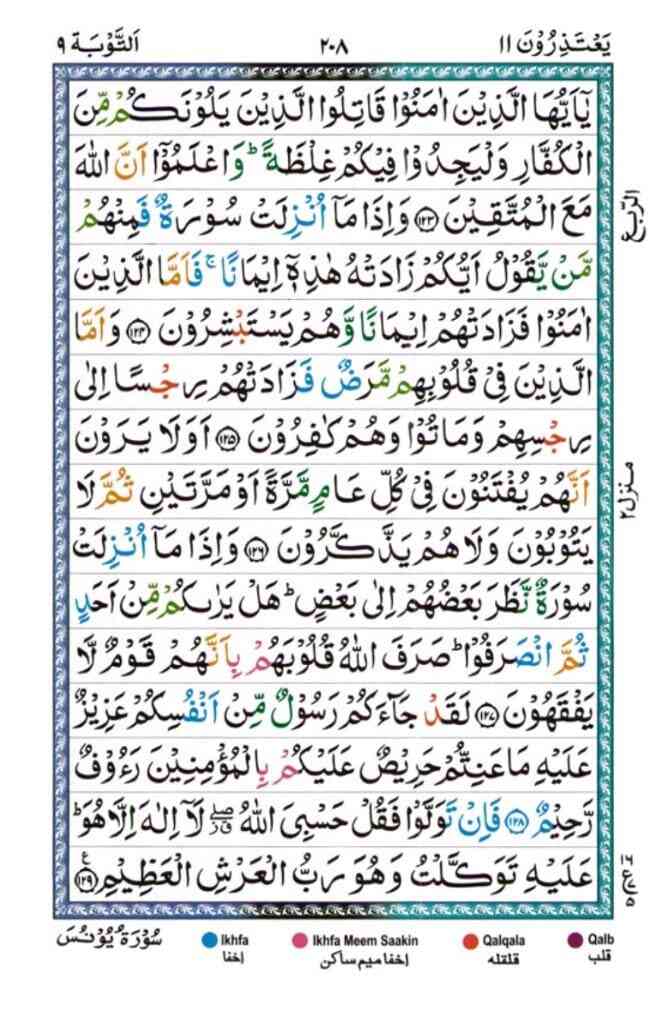 يَعۡتَذِرُوۡنَ ١١
٢٠٨
اَلتَّوۡبَة ٩
يٰۤاَيُّهَا الَّذِيۡنَ اٰمَنُوۡا قَاتِلُوا الَّذِيۡنَ يَلُوۡنَكُمۡ مِّنَ
الۡكُفَّارِ وَلۡيَجِدُوۡا فِيۡكُمۡ غِلۡظَةً‌ ؕ وَاعۡلَمُوۡاۤ اَنَّ اللّٰهَ
مَعَ الۡمُتَّقِيۡنَ ﴿۱۲۳﴾ وَاِذَا مَاۤ اُنۡزِلَتۡ سُوۡرَةٌ فَمِنۡهُمۡ
مَّنۡ يَّقُوۡلُ اَيُّكُمۡ زَادَتۡهُ هٰذِهٖۤ اِيۡمَانًا‌ ۚ فَاَمَّا الَّذِيۡنَ
اٰمَنُوۡا فَزَادَتۡهُمۡ اِيۡمَانًا وَّهُمۡ يَسۡتَبۡشِرُوۡنَ ﴿۱۲۴﴾ وَاَمَّا
الَّذِيۡنَ فِىۡ قُلُوۡبِهِمۡ مَّرَضٌ فَزَادَتۡهُمۡ رِجۡسًا اِلٰى
رِجۡسِهِمۡ وَمَاتُوۡا وَهُمۡ كٰفِرُوۡنَ ﴿۱۲۵﴾ اَوَلَا يَرَوۡنَ
اَنَّهُمۡ يُفۡتَنُوۡنَ فِىۡ كُلِّ عَامٍ مَّرَّةً اَوۡ مَرَّتَيۡنِ ثُمَّ لَا
يَتُوۡبُوۡنَ وَلَا هُمۡ يَذَّكَّرُوۡنَ ﴿۱۲۶﴾ وَاِذَا مَاۤ اُنۡزِلَتۡ
سُوۡرَةٌ نَّظَرَ بَعۡضُهُمۡ اِلٰى بَعۡضٍ ؕ هَلۡ يَرٰٮكُمۡ مِّنۡ اَحَدٍ
ثُمَّ انۡصَرَفُوۡا‌ ؕ صَرَفَ اللّٰهُ قُلُوۡبَهُمۡ بِاَنَّهُمۡ قَوۡمٌ لَّا
يَفۡقَهُوۡنَ ﴿۱۲۷﴾ لَقَدۡ جَآءَكُمۡ رَسُوۡلٌ مِّنۡ اَنۡفُسِكُمۡ عَزِيۡزٌ
عَلَيۡهِ مَا عَنِتُّمۡ حَرِيۡصٌ عَلَيۡكُمۡ بِالۡمُؤۡمِنِيۡنَ رَءُوۡفٌ
رَّحِيۡمٌ ﴿۱۲۸﴾ فَاِنۡ تَوَلَّوۡا فَقُلۡ حَسۡبِىَ اللّٰهُ ۖ لَاۤ اِلٰهَ اِلَّا هُوَ‌ ؕ
عَلَيۡهِ تَوَكَّلۡتُ‌ وَهُوَ رَبُّ الۡعَرۡشِ الۡعَظِيۡمِ ﴿۱۲۹﴾
الرّبع
منزل ٢
سُوۡرَةُ يُوۡنُسَ
Ikhfa
اخفا
Ikhfa Meem Saakin
اخفا میم ساکن
Qalqala
قلقله
Qalb
قلب